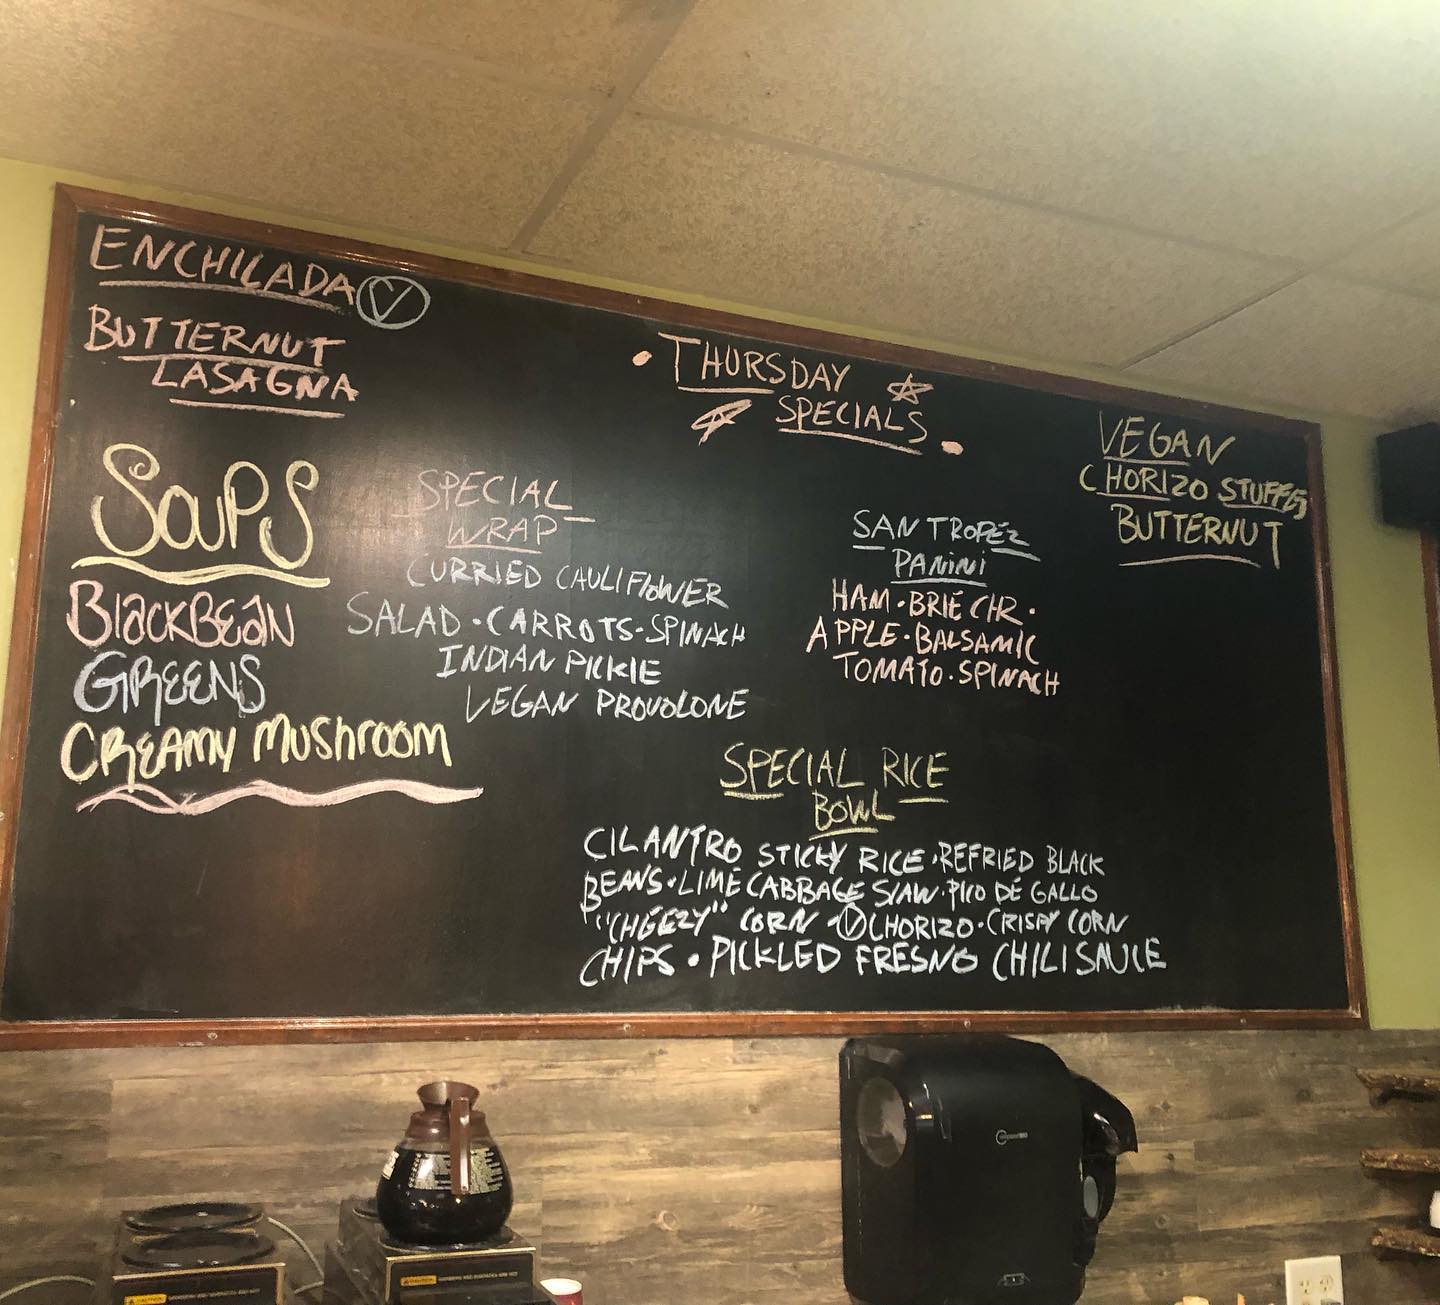 ENCHILADA V
BUTTERNUT
LASAGNA
SOUPS
BlackBean
GREENS
CREAMY MUSHROOM
THURSDAY
SPECIALS
SPECIAL
WRAP
CURRIED CAULIFLOWER
SALAD · CARROTS · SPINACH
INDIAN PICKLE
VEGAN PROVOLONE
SAN TROPÉZ
PANINI
HAM · BRIE CHR ·
APPLE · BALSAMIC
TOMATO · SPINACH
VEGAN
CHORIZO STUFFED
BUTTERNUT
SPECIAL RICE
BOWL
CILANTRO STICKY RICE · REFRIED BLACK
BEANS · LIME CABBAGE SLAW · PICO DÉ GALLO
"CHEEZY" CORN - V CHORIZO · CRISPY CORN
CHIPS · PICKLED FRESNO CHILI SAUCE
CAUTION
CAUTION